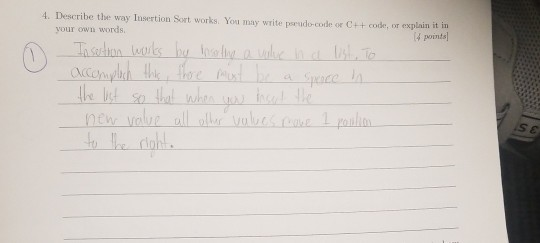 4. Describe the way Insertion Sort works. You may write pseudo-code or C++ code, or explain it in
your own words. [4 points]
1 Insertion works by inserting a value in a list. To
accomplish this, there must be a space in
the list so that when you insert the
new value all other values move 1 position
to the right.